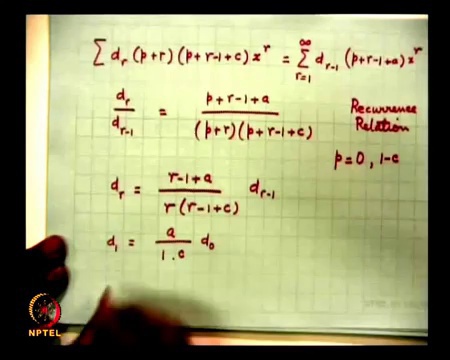 ∑ d_r (p+r) (p+r-1+c) x^r = ∑_{r=1}^{∞} d_{r-1} (p+r-1+a) x^r
d_r / d_{r-1} = (p+r-1+a) / ((p+r) (p+r-1+c))
Recurrence
Relation
p=0, 1-c
d_r = (r-1+a) / (r (r-1+c)) d_{r-1}
d_1 = a / (1 . c) d_0
NPTEL